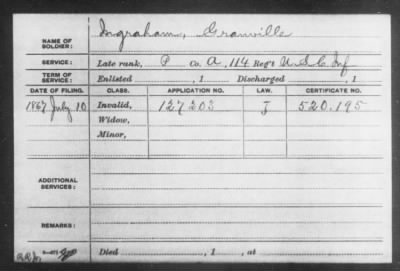 NAME OF SOLDIER: Ingraham, Granville
SERVICE: Late rank, P Co. A, 114 Reg't U S C Inf
TERM OF SERVICE: Enlisted , 1 Discharged , 1
DATE OF FILING. CLASS. APPLICATION NO. LAW. CERTIFICATE NO.
1867 July 10 Invalid, 127203 J 520.195
Widow,
Minor,
ADDITIONAL SERVICES:
REMARKS:
Died , 1 , at